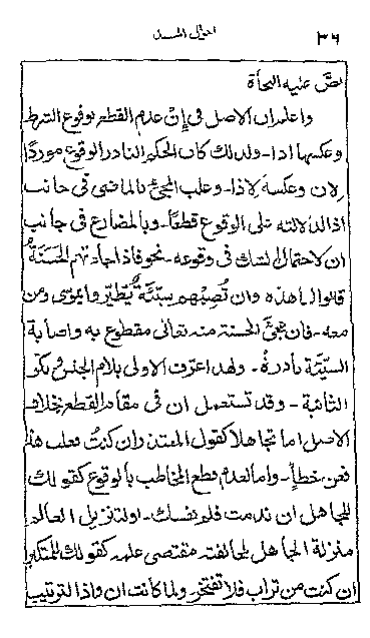 احوال المسند
٣٦
نصَّ عليه النحاة
واعلم ان الاصل فى اِنْ عدم القطع بوقوع الشرط
وعكسها اذا - ولذلك كان الحكم النادر الوقوع موردًا
لِان وعكسه لاذا - وغلب المجئ بالماضى فى جانب
اذا لدلالته على الوقوع قطعًا - وبالمضارع فى جانب
ان لاحتمال الشك فى وقوعه - نحو فاذا جاءتهم الحَسَنَةُ
قالوا لنا هذه وان تُصِبْهم سيّئةٌ يَطّيّروا بموسى ومن
معه - فان مجئَ الحسنة منه تعالى مقطوع به واصابة
السيّئة نادرةٌ - ولهذا عرّفت الاولى بلام الجنس ونكر
الثانية - وقد تستعمل ان فى مقام القطع بخلاف
الاصل اما تجاهلا كقول المعتذر ان كنتُ فعلت هذا
فعن خطأٍ - واما لعدم قطع المخاطب بالوقوع كقولك
للجاهل ان ندمت فلم نفسك - او لتنزيل العالم
منزلة الجاهل لمخالفته مقتضى علمه كقولك للمتكبر
ان كنت من تراب فلا تفتخر ولما كانت ان واذا لترتيب